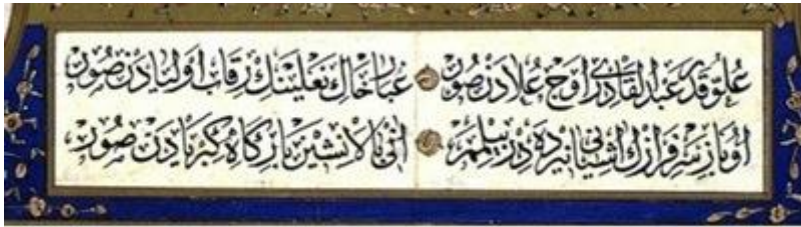 علو قدر عبد القادری اوج علادن صور غبار خاك نعلیننك رقاب اولیادن صور
او باز سرفرازك آشیانی نیرده در بیلمم آنی بالا نشین بارکاه کبریادن صور